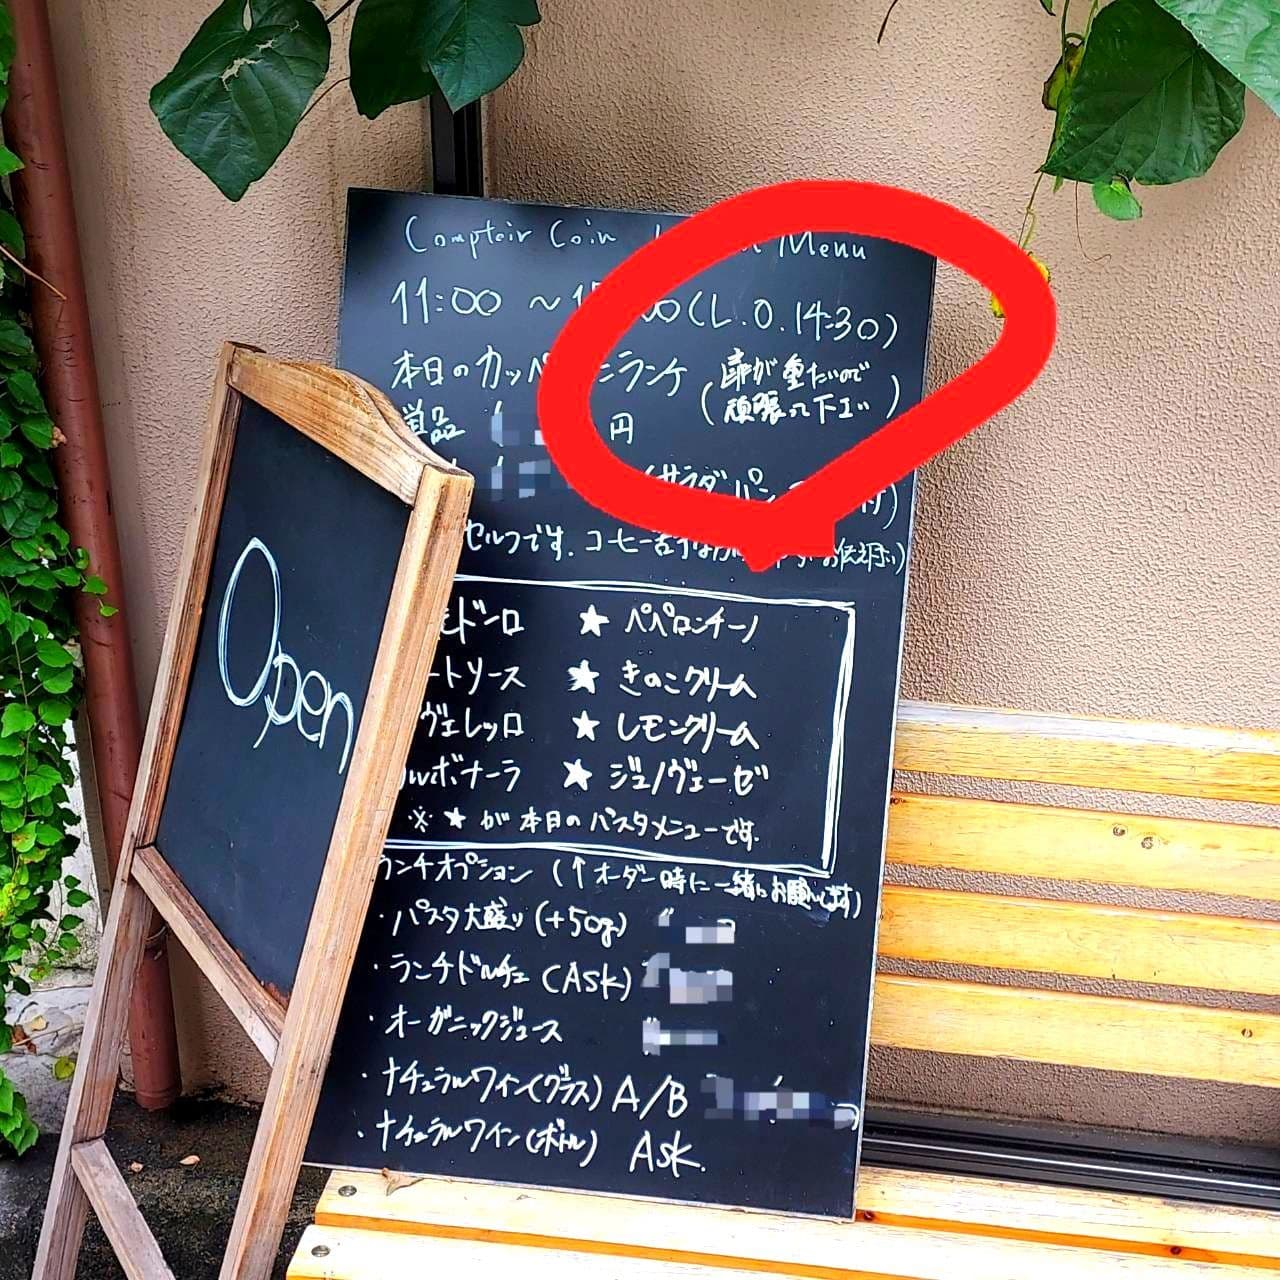 Comptoir Coin Menu
11:00 ～ 00 (L.O. 14:30)
本日のカッペ ランチ (扉が重たいので
頑張って下さい)
単品 円
(サラダ パン
セルフです. コーヒー苦手な お伝え下さい)
Open
モドーロ ★ ペペロンチーノ
ートソース ★ きのこクリーム
ヴェレッロ ★ レモンクリーム
ルボナーラ ★ ジェノヴェーゼ
※ ★ が本日のパスタメニューです.
ランチオプション (↑オーダー時に一緒にお願いします)
・パスタ大盛り (+50g)
・ランチドルチェ (ASK)
・オーガニックジュース
・ナチュラルワイン(グラス) A/B
・ナチュラルワイン(ボトル) ASK.